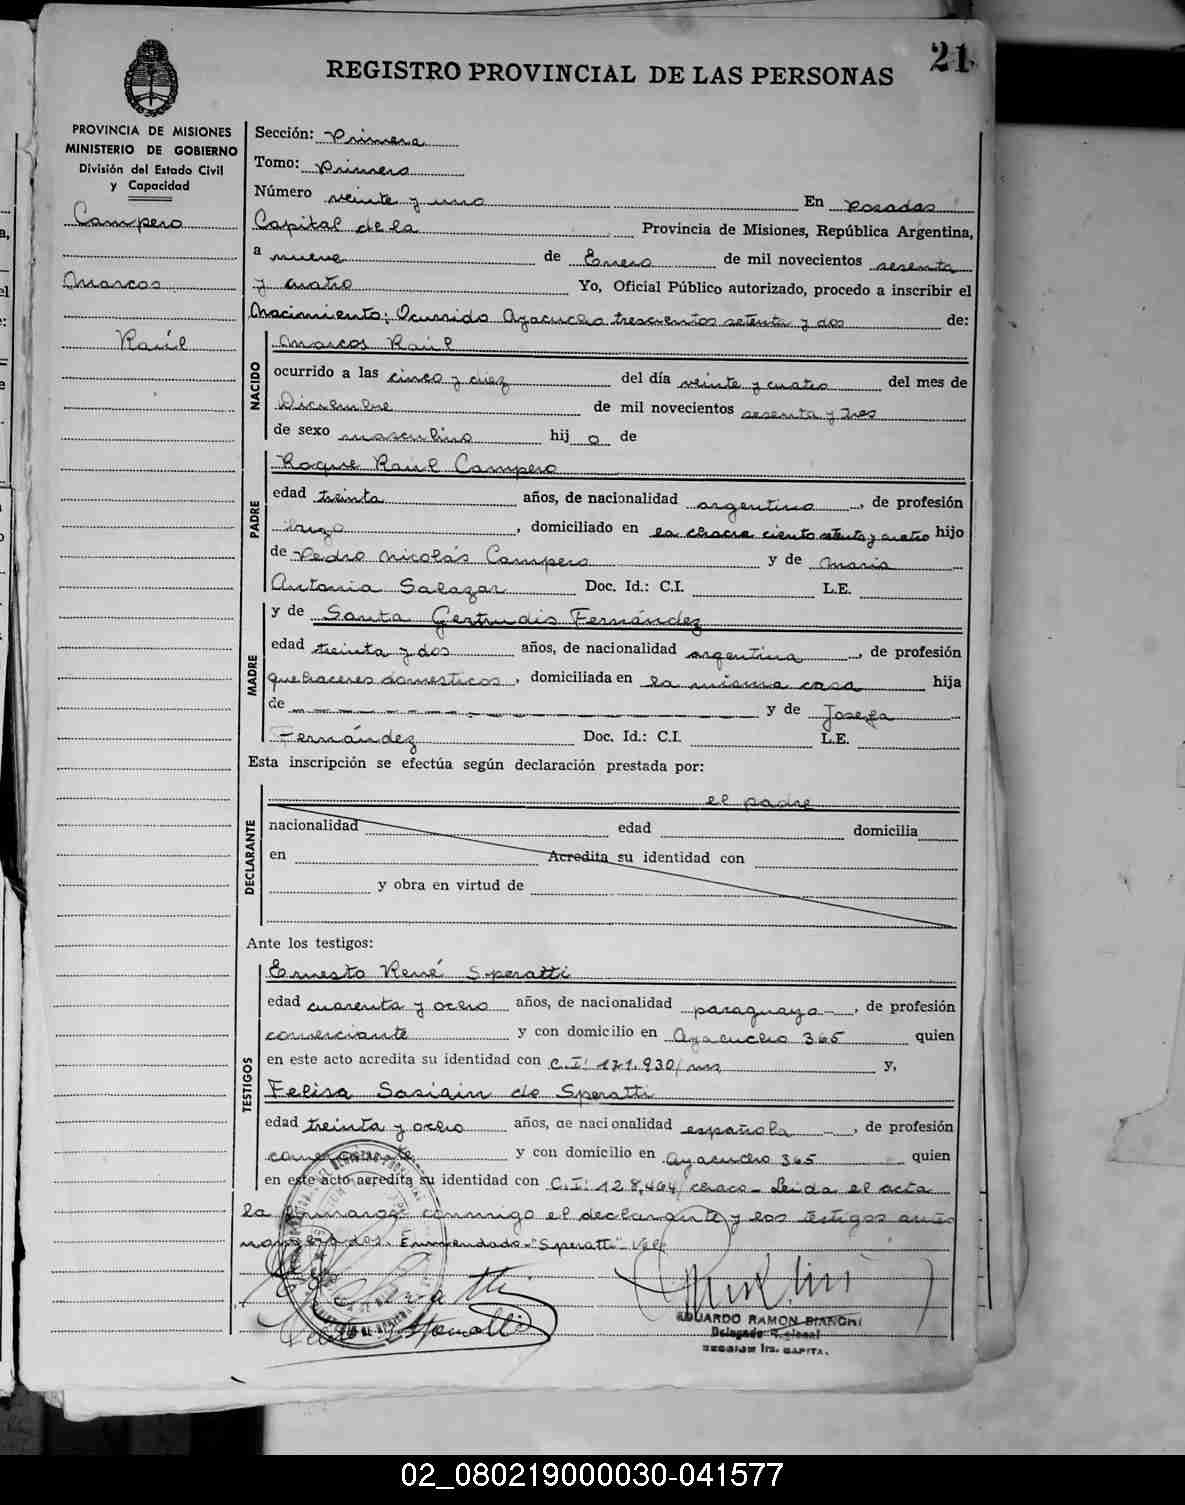 21
REGISTRO PROVINCIAL DE LAS PERSONAS
PROVINCIA DE MISIONES
MINISTERIO DE GOBIERNO
División del Estado Civil
y Capacidad
Campero
Marcos
Raúl
Sección: Primera
Tomo: Primero
Número veinte y uno En Posadas
Capital de la Provincia de Misiones, República Argentina,
a nueve de Enero de mil novecientos sesenta
y cuatro Yo, Oficial Público autorizado, procedo a inscribir el
Nacimiento; Ocurrido Ayacucho trescientos setenta y dos de:
NACIDO
Marcos Raúl
ocurrido a las cinco y diez del día veinte y cuatro del mes de
Diciembre de mil novecientos sesenta y tres
de sexo masculino hij o de
PADRE
Roque Raúl Campero
edad treinta años, de nacionalidad argentino, de profesión
domiciliado en la chacra ciento setenta y cuatro hijo
de Pedro Nicolás Campero y de María
Antonia Salazar Doc. Id.: C.I. L.E.
MADRE
y de Santa Gertrudis Fernández
edad treinta y dos años, de nacionalidad argentina, de profesión
quehaceres domesticos, domiciliada en la misma casa hija
de y de Josefa
Fernández Doc. Id.: C.I. L.E.
Esta inscripción se efectúa según declaración prestada por:
DECLARANTE
el padre
nacionalidad edad domicilia
en Acredita su identidad con
y obra en virtud de
Ante los testigos:
TESTIGOS
Ernesto René Speratti
edad cuarenta y ocho años, de nacionalidad paraguayo, de profesión
comerciante y con domicilio en Ayacucho 365 quien
en este acto acredita su identidad con C.I: 171.930/ y,
Felisa Sasiain de Speratti
edad treinta y ocho años, de nacionalidad española, de profesión
comerciante y con domicilio en Ayacucho 365 quien
en este acto acredita su identidad con C.I: 128,464/chaco- Leida el acta
la firmaron conmigo el declarante y los testigos antes
nombrados. Enmendado-"Speratti"-Vale
EDUARDO RAMON BIANCHI
Delegado Regional
SECCION 1ra. CAPITA.
02_080219000030-041577